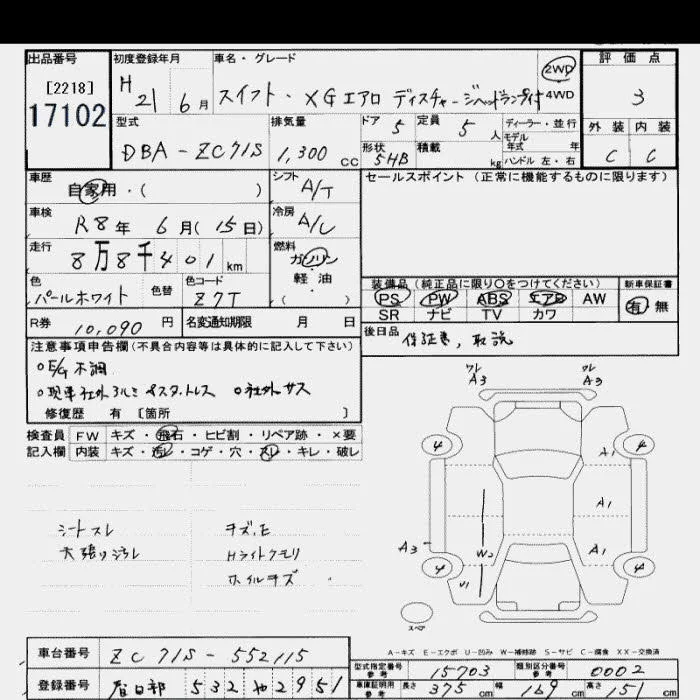 出品番号 初度登録年月 車名・グレード 評価点
[2218] 17102
H 21 6月 スイフト・XGエアロ ディスチャージヘッドランプ付 2WD 4WD 3
外装 内装
C C
型式 排気量 ドア 5 定員 5人 ディーラー・並行
DBA-ZC71S 1,300 CC
形状 5HB 積載 kg モデル年式 年 ハンドル 左・右
車歴 自家用・( )
シフト A/T
セールスポイント(正常に機能するものに限ります)
車検 R8年 6月(15日)
冷房 A/C
走行 8万8千401km
燃料 ガソリン 軽油 ( )
色 パールホワイト 色替 色コード Z7T
装備品(純正品に限り○をつけてください) 新車保証書
PS PW ABS エアB AW 有 無
SR ナビ TV カワ
R券 10,090円 名変通知期限 月 日
後日品 保証書, 取説
注意事項申告欄(不具合内容等は具体的に記入して下さい)
○E/G不調
○現車社外アルミ ○社外サス
修復歴 有 [箇所 ]
検査員 FW キズ・飛石・ヒビ割・リペア跡・×要
記入欄 内装 キズ・汚レ・コゲ・穴・スレ・キレ・破レ
シートスレ キズ,E
天張り汚れ Hライトクモリ
ホイルキズ
ワレ A3 ワレ A3
4 4
A1
A1
A3 W2 A1
4 4
U1
スペア
A-キズ E-エクボ U-凹み W-補修跡 S-サビ C-腐食 XX-交換済
車台番号 ZC71S-552115
型式指定番号 参考 15703 類別区分番号 参考 0002
登録番号 春日部 532 や 2951
車庫証明用 参考 長さ 375cm 幅 169cm 高さ 51cm